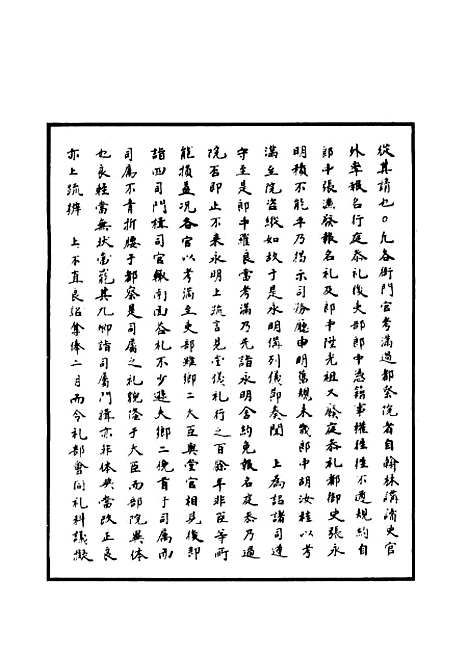 從其請也○凡各衙門官考滿過都察院者自翰林講讀史官
外率報名行庭恭礼後吏部郎中憑籍事權往往不遵規約自
郎中張漁發報名礼及郎中陞光祖又廢庭恭礼都御史張永
明積不能平乃揭示司務廳申明舊規未幾郎中胡汝桂以考
滿至院咨縱如故于是永明偹列儀節奏聞　上為詔諸司遵
守至是郎中羅良當考滿乃先詣永明舍約免報名庭恭乃過
院否即止不来永明上疏言見堂儀礼行之百餘年非臣等所
能損益况各官以考滿至吏部雖鄉二大臣與堂官相見後即
詣四司門揖司官輙南面荅礼不少遜夫鄉二俛首于司属而
司属不肯折腰于都察是司属之礼貌隆于大臣而部院與体
也良輕當無状當罷其九卿詣司属門揖亦非体典當改正良
亦上疏辨　上不直良詔奪俸二月而令礼部會同礼科議擬